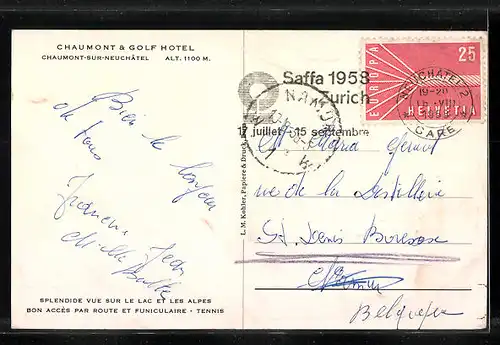 CHAUMONT & GOLF HOTEL
CHAUMONT-SUR-NEUCHÂTEL ALT. 1100 M.
Bien le bonjour
de tous
SPLENDIDE VUE SUR LE LAC ET LES ALPES
BON ACCÈS PAR ROUTE ET FUNICULAIRE - TENNIS
L. M. Kohler, Papiere & Druck,
Saffa 1958
Zurich
17 juillet - 15 septembre
NAMUR
EUROPA
25
HELVETIA
NEUCHÂTEL 2
19-20
VIII
GARE
Maria
rue de la Distillerie
St Denis Bovesse
Namur
Belgique